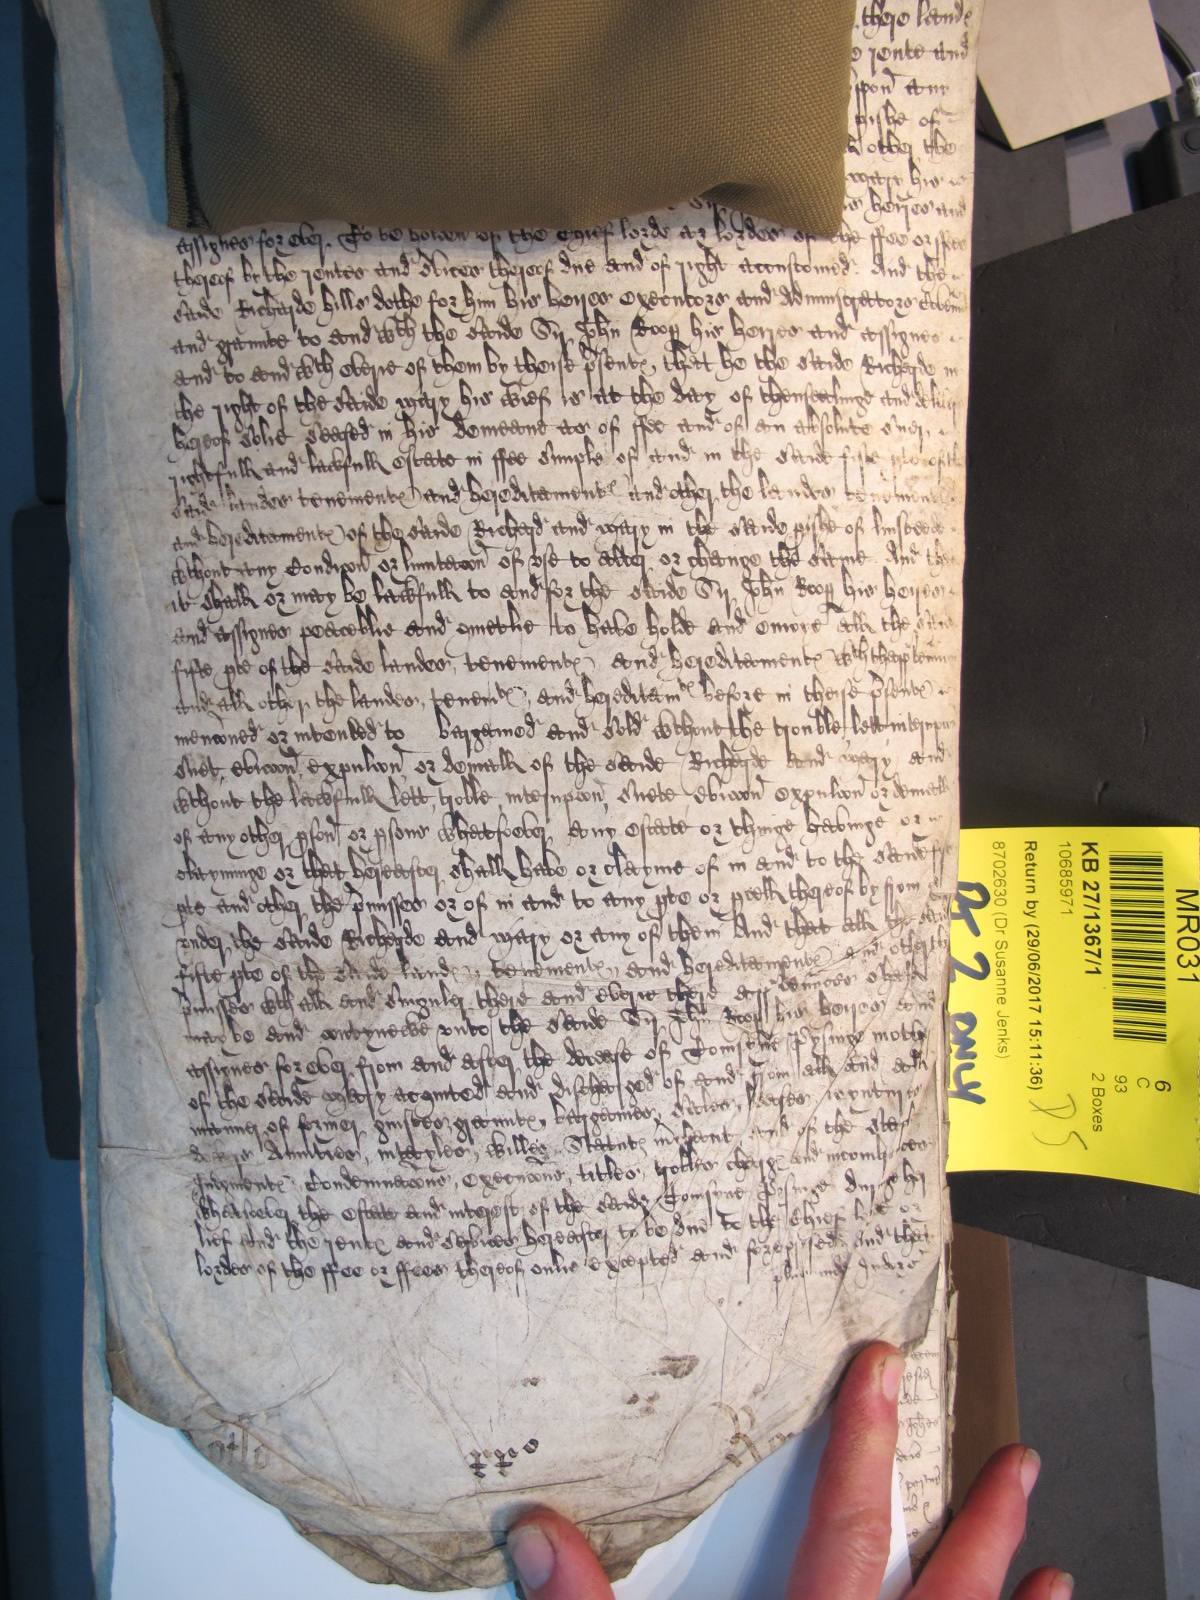 there landes
rente and
vpon any
pishe of
other the
mary his
heires and
assignes for ever. To be holden of the Chief lorde or lordes of the ffee or ffees
thereof by the rentes and s'vices thereof due and of right accustomed. And the
saide Richarde hills dothe for him his heires executors and administrators Coven
and graunte to and wth the saide Sir John Roop his heires and assignes
and to and wth everie of them by theise p'sentes, that he the saide Richarde in
the right of the saide mary his wief is at the day of thensealinge and deliu
hereof solie seased in his demeane as of ffee and of an absolute suer,
rightfull and lawfull estate in ffee simple of and in the saide fifte pte of the
said landes tenementes and hereditamentes and other the landes tenementes
and hereditamentes of the saide Richard and mary in the saide pishe of linstede
wthout any Condicion or limitacion of vse to alter or change the same. And that
it shall or may be lawfull to and for the saide Sir John Roop his heires
and assignes peaceblie and quietlie to have holde and enioye all the saide
fifte pte of the saide landes, tenementes and hereditamentes wth thapp'tennc
and all other the landes, tenemtes, and hereditamtes before in theise p'sentes
mencioned or intended to bargained and sold wthout the trouble, lett interrup
suet, evicion, expulcion, or deniall of the saide Richarde and mary, and
wthout the lawfull lett, troble, interrupcion, suete evicion expulcion or deniall
of any other pson or psons whatsoever, any estate or thinge havinge or
clayminge or that hereafter shall have or clayme of in and to the said fifte
pte and other the p'misses or of in and to any pte or pcell thereof by from
vnder the saide Richarde and mary or any of them And that all the said
fifte pte of the saide landes, tenementes, and hereditamentes and other the
p'misses wth all and singuler there and everie there app'tennces shall
may be and contynewe vnto the saide Sir John Roop his heires and
assignes for ever from and after the decease of Tomsyne Pysinge mother
of the saide mary acquited and discharged of and from all and all
manner of former guiftes, grauntes, bargaines, Sales, leases, ioyntures
dowers Anuities, intayles, willes, Statutes m'chant and of the Stap
Judgmentes Condemnacions, execucions, titles, trobles charges and incombrances
whatsoever the estate and interest of the saide Tomsyne Pisinge duringe her
lief and the rentes and s'vices hereafter to be due to the chief lorde or
lordes of the ffee or ffees thereof onlie excepted and foreprised. And that
plus inde Indors
MR031
6
C
93
2 Boxes
KB 27/1367/1
10685971
Return by (29/06/2017 15:11:36)
8702630 (Dr Susanne Jenks)
Pt 2 only
DS